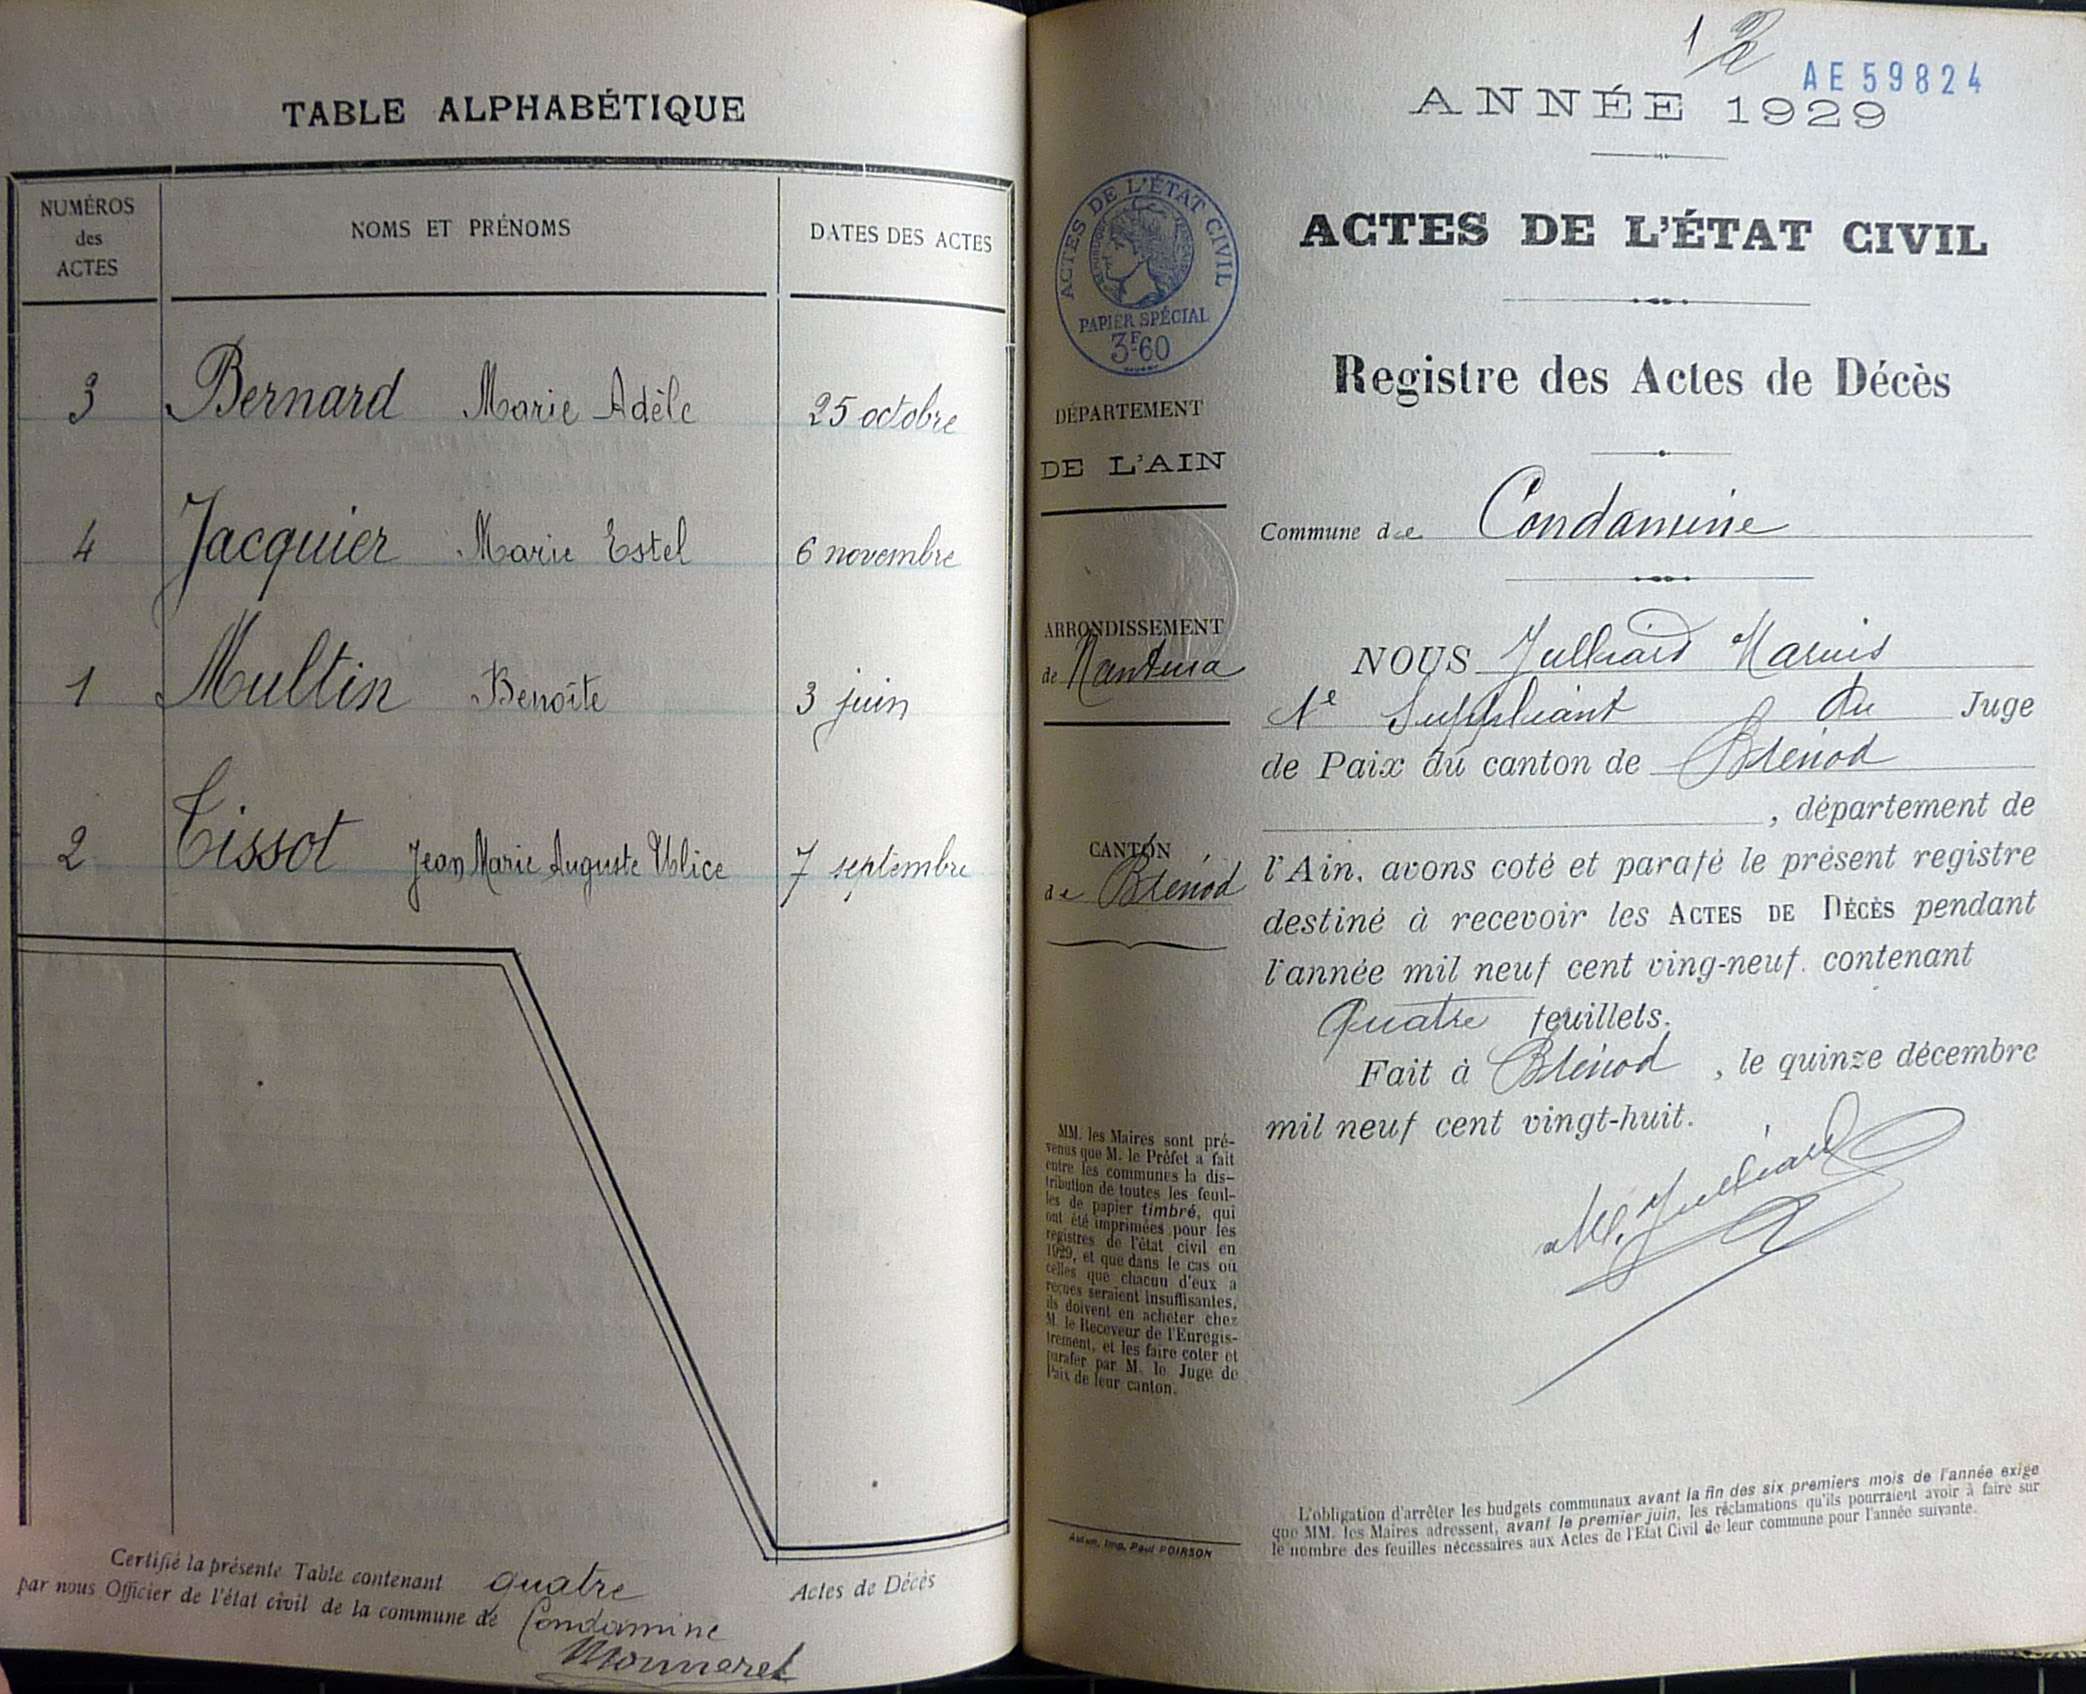 TABLE ALPHABÉTIQUE
NUMÉROS des ACTES
NOMS ET PRÉNOMS
DATES DES ACTES
3 Bernard Marie Adèle 25 octobre
4 Jacquier Marie Estel 6 novembre
1 Multin Benoîte 3 juin
2 Tissot Jean Marie Auguste Ulice 7 septembre
Certifié la présente Table contenant quatre Actes de Décès
par nous Officier de l'état civil de la commune de Condamine
Monneret
1
AE 59824
ANNÉE 1929
ACTES DE L'ÉTAT CIVIL
RÉPUBLIQUE FRANÇAISE
PAPIER SPÉCIAL
3F60
DÉPARTEMENT
DE L'AIN
ARRONDISSEMENT
de Nantua
CANTON
de Brénod
MM. les Maires sont pré-
venus que M. le Préfet a fait
entre les communes la dis-
tribution de toutes les feuil-
les de papier timbré, qui
ont été imprimées pour les
registres de l'état civil en
1929, et que dans le cas où
celles que chacun d'eux a
reçues seraient insuffisantes,
ils doivent en acheter chez
M. le Receveur de l'Enregis-
trement, et les faire coter et
parafer par M. le Juge de
Paix de leur canton.
Autun, Imp. Paul POIRSON
ACTES DE L'ÉTAT CIVIL
Registre des Actes de Décès
Commune de Condamine
NOUS Julliard Marius
1e Suppléant du Juge
de Paix du canton de Brénod
, département de
l'Ain, avons coté et parafé le présent registre
destiné à recevoir les ACTES DE DÉCÈS pendant
l'année mil neuf cent ving-neuf. contenant
Quatre feuillets.
Fait à Brénod , le quinze décembre
mil neuf cent vingt-huit.
M. Julliard
L'obligation d'arrêter les budgets communaux avant la fin des six premiers mois de l'année exige
que MM. les Maires adressent, avant le premier juin, les réclamations qu'ils pourraient avoir à faire sur
le nombre des feuilles nécessaires aux Actes de l'Etat Civil de leur commune pour l'année suivante.